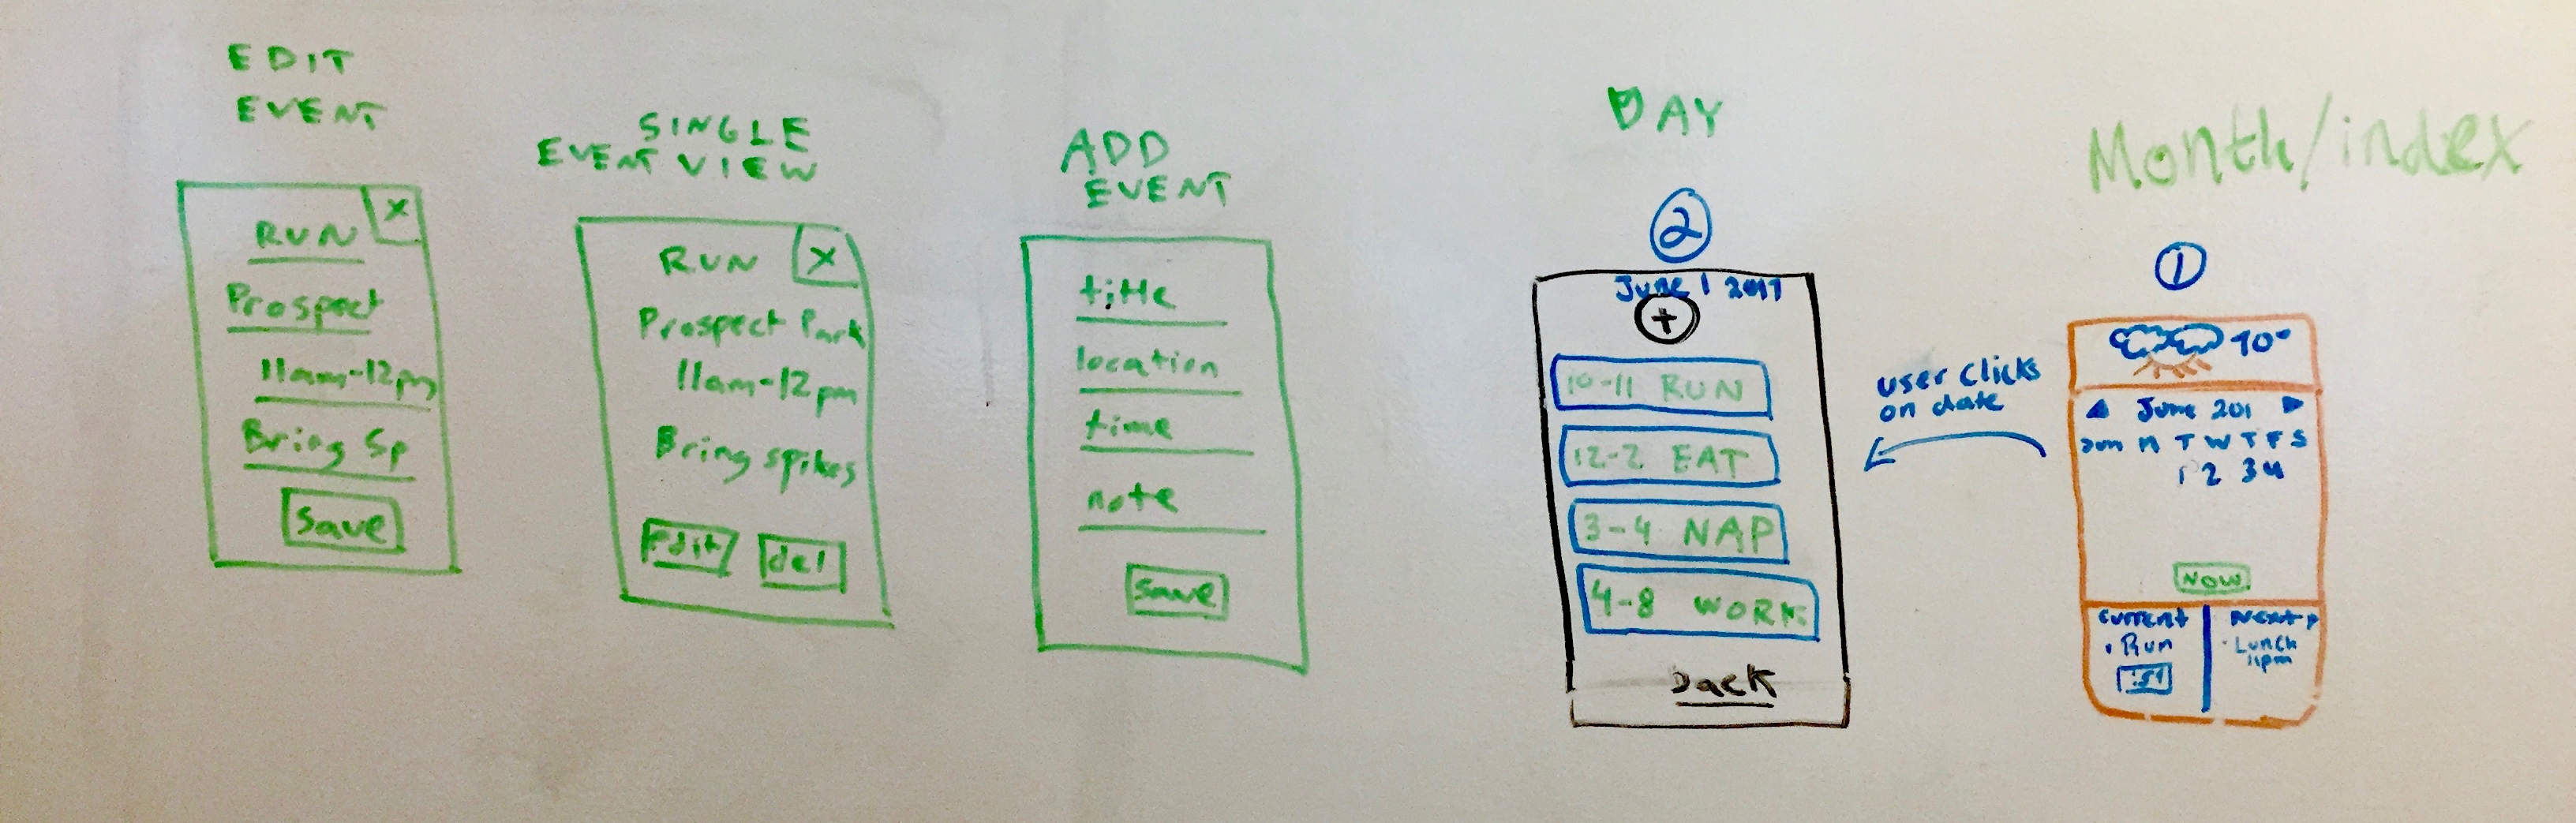 EDIT
EVENT
X
RUN
Prospect
11am-12pm
Bring Sp
Save
SINGLE
EVENT VIEW
RUN X
Prospect Park
11am-12pm
Bring spikes
Edit del
ADD
EVENT
title
location
time
note
Save
DAY
2
June 1 2017
+
10-11 RUN
12-2 EAT
3-4 NAP
4-8 WORK
back
user clicks
on date
Month/index
1
90°
June 201
Sun M T W T F S
1 2 3 4
NOW
Current
Run
Next
Lunch